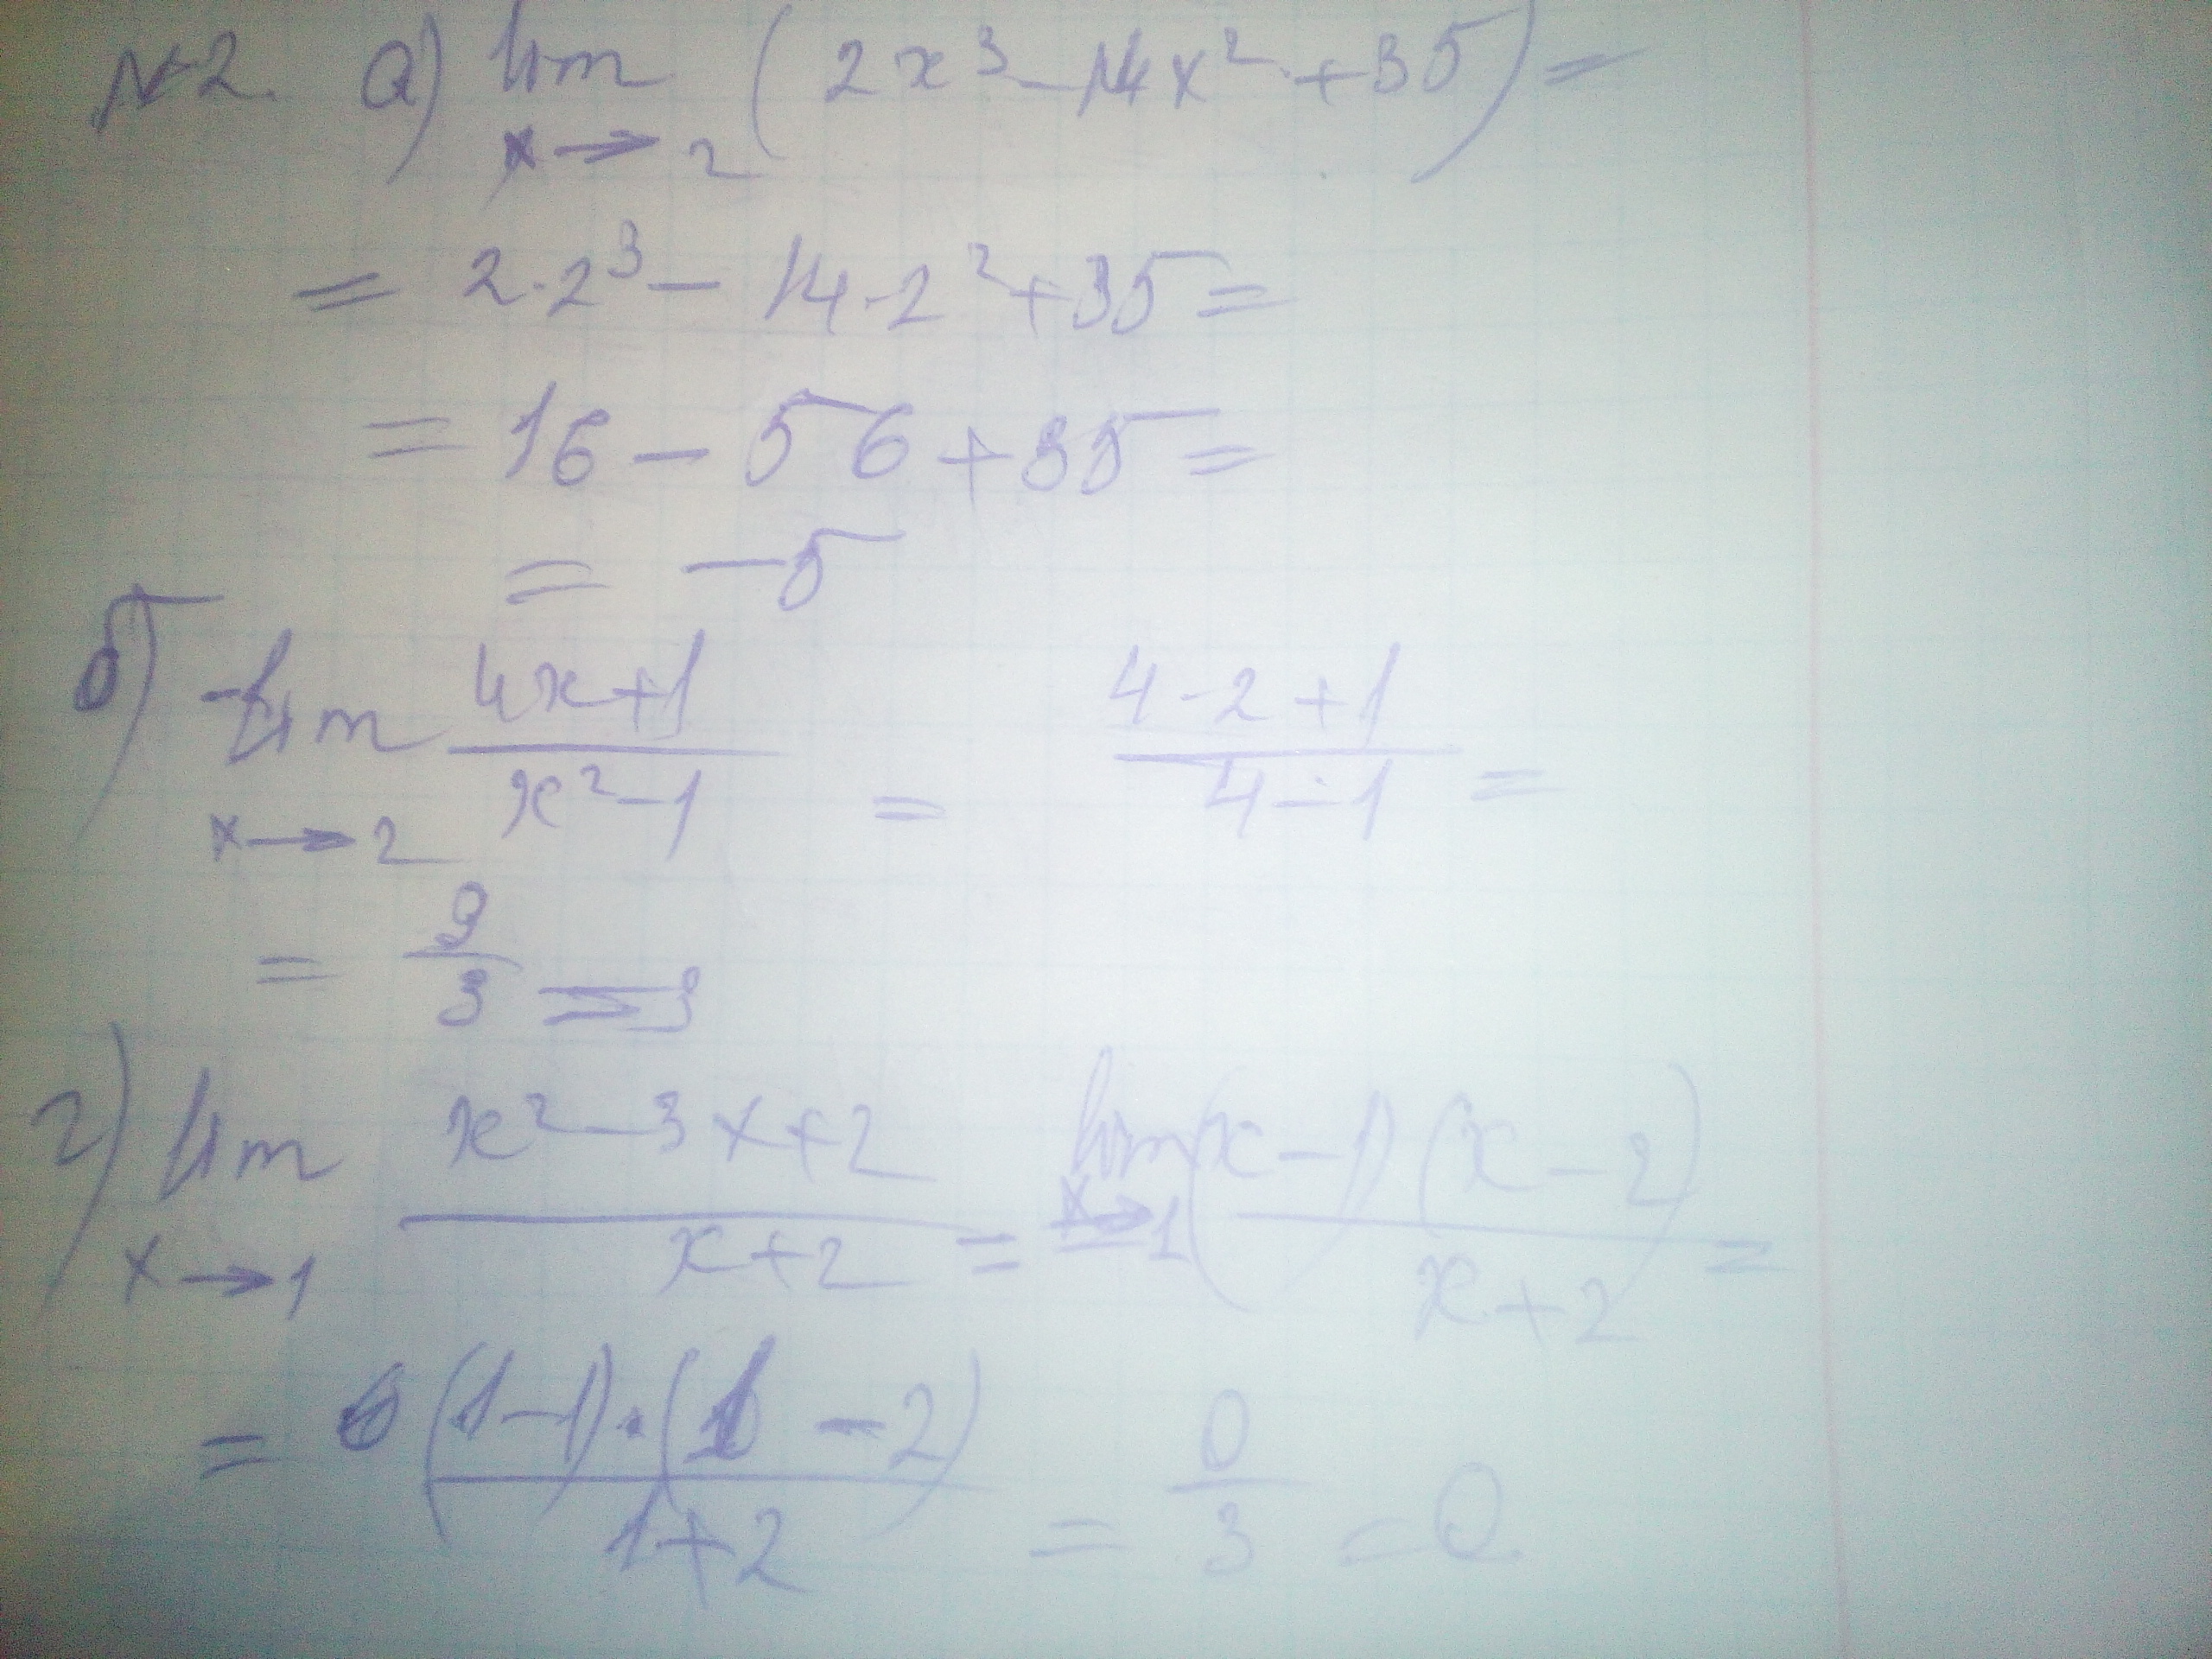 №2. а) lim (2x³ - 14x² + 35) =
x → 2
= 2·2³ - 14·2² + 35 =
= 16 - 56 + 35 =
= -5
б) lim (4x+1)/(x²-1) = (4·2+1)/(4-1) =
x → 2
= 9/3 = 3
г) lim (x²-3x+2)/(x+2) = lim (x-1)(x-2)/(x+2) =
x → 1 x → 1
= (1-1)·(1-2)/(1+2) = 0/3 = 0